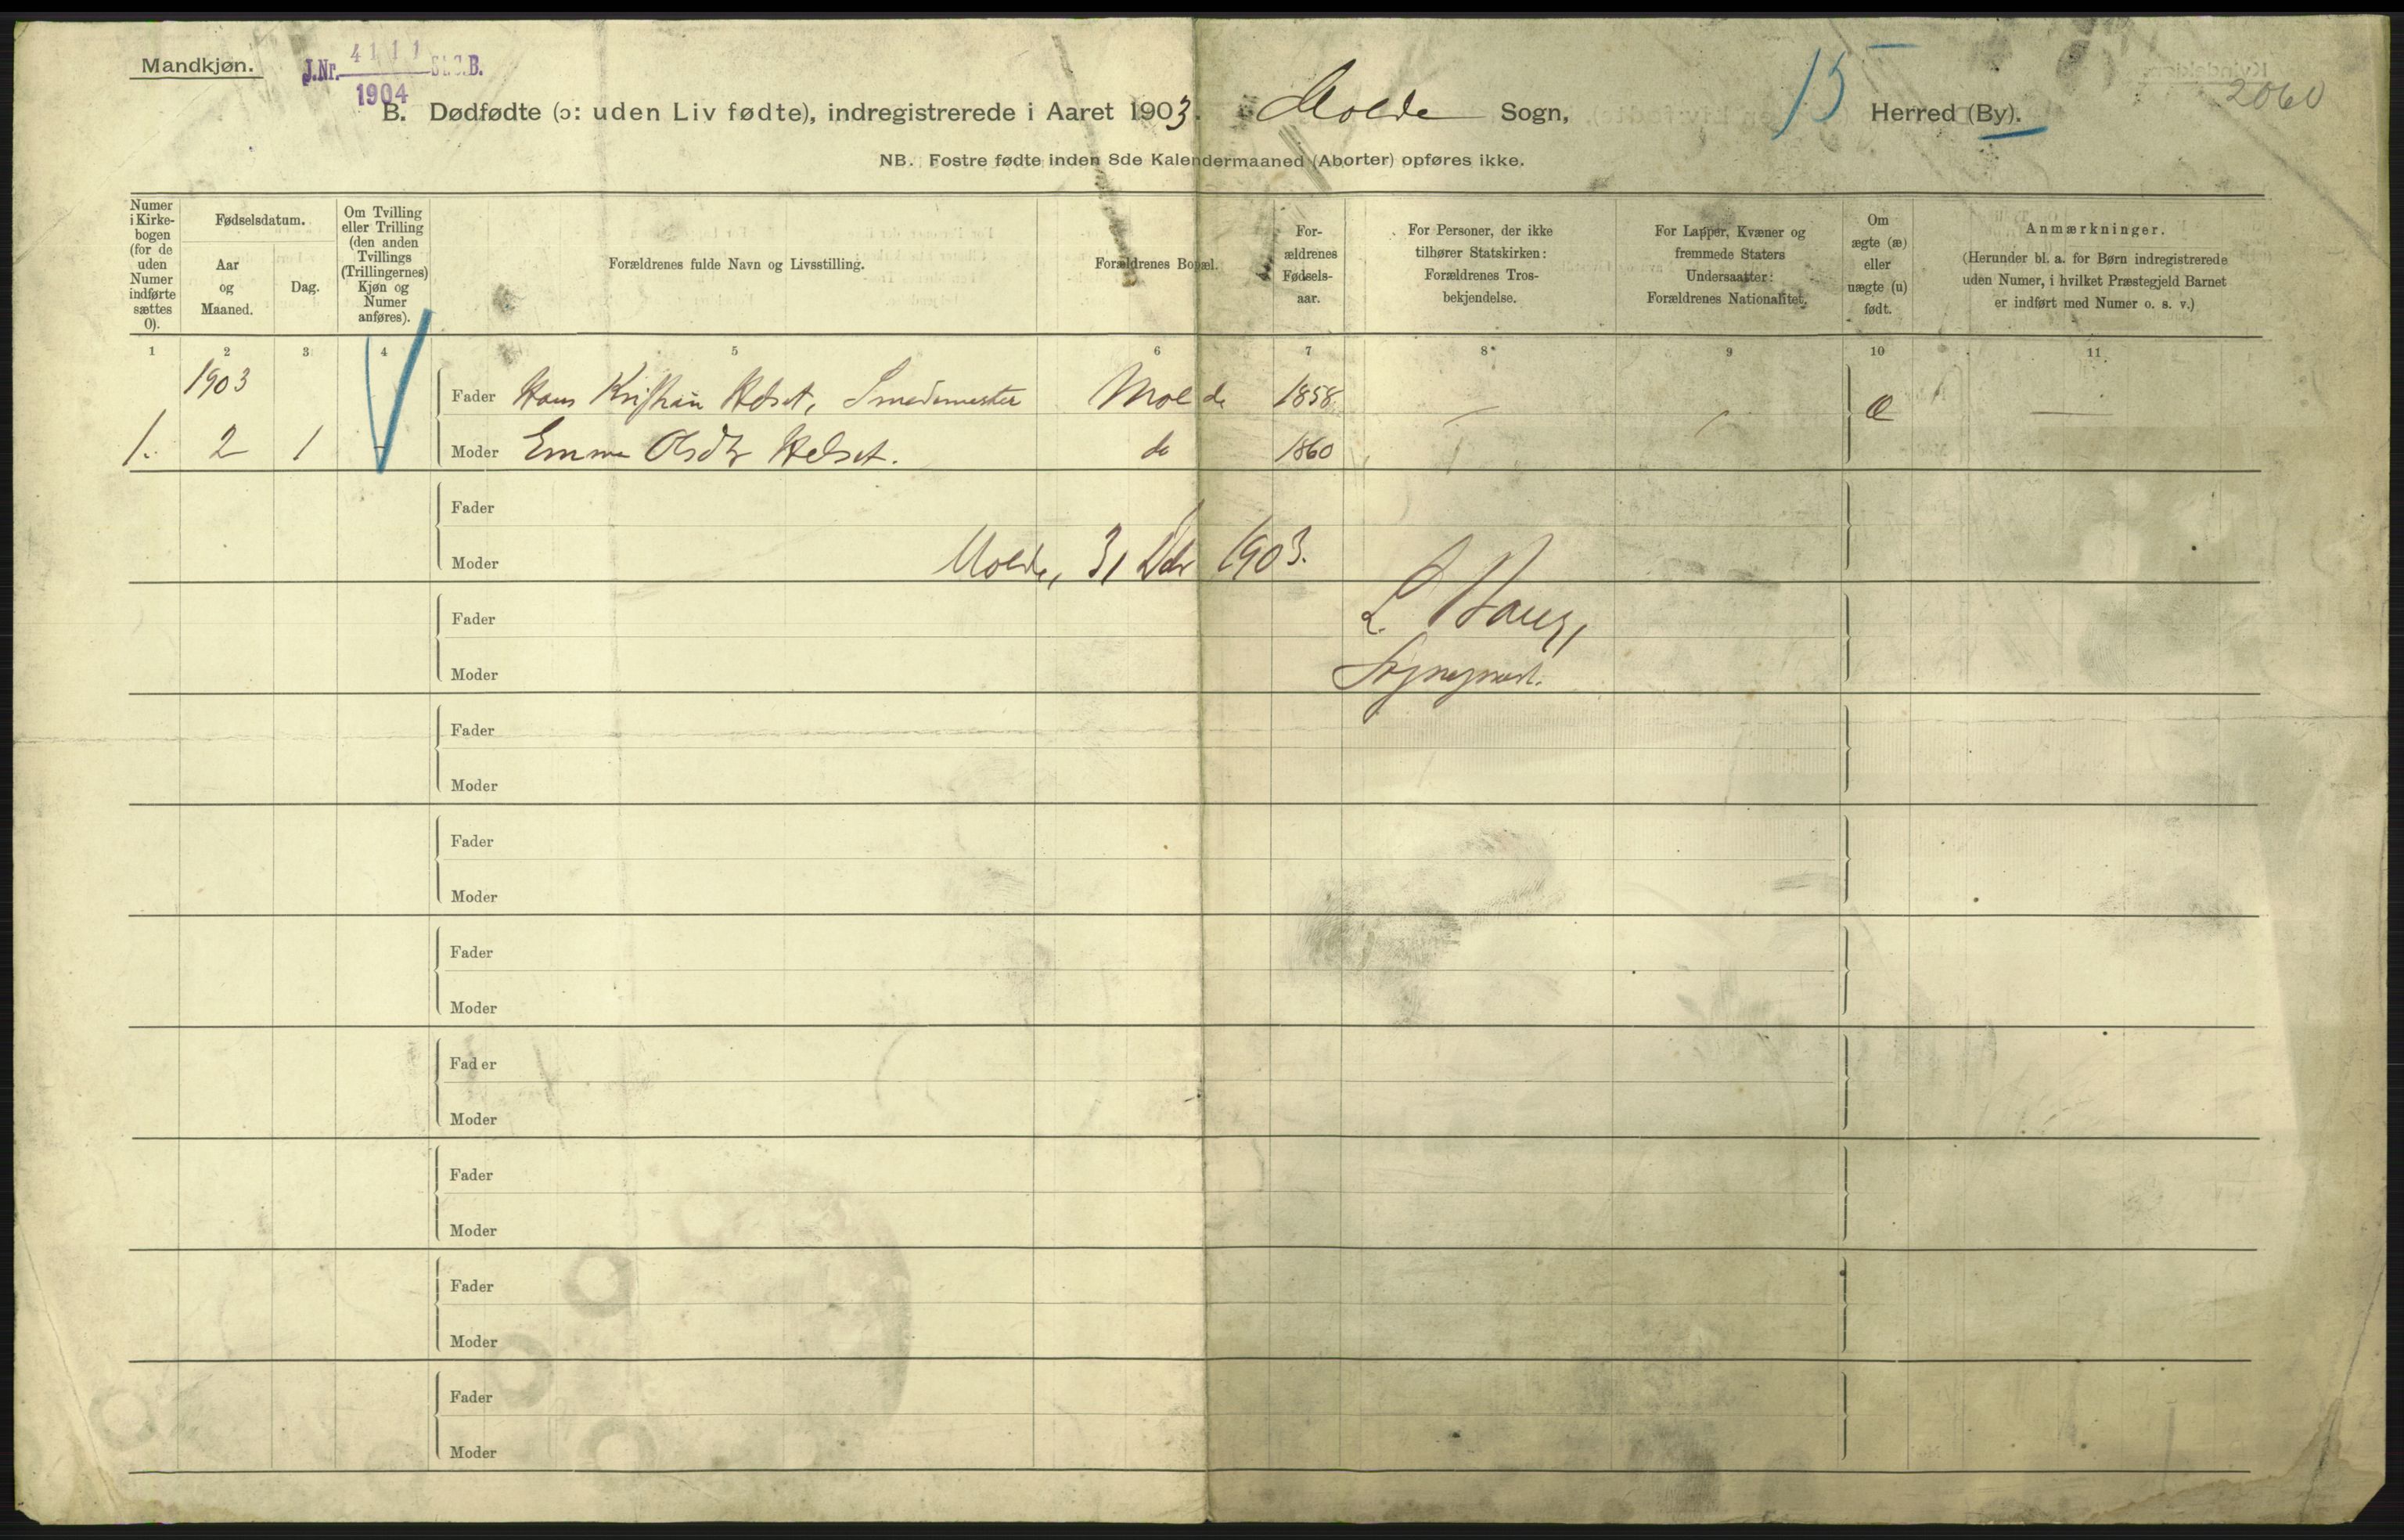 Mandkjøn.
J.Nr. 4111 St.C.B.
1904
15
2060
B. Dødfødte (ɔ: uden Liv fødte), indregistrerede i Aaret 1903. Molde Sogn, Herred (By).
NB. Fostre fødte inden 8de Kalendermaaned (Aborter) opføres ikke.
Numer i Kirkebogen (for de uden Numer indførte sættes 0).
Fødselsdatum.
Aar og Maaned.
Dag.
Om Tvilling eller Trilling (den anden Tvillings (Trillingernes) Kjøn og Numer anføres).
Forældrenes fulde Navn og Livsstilling.
Forældrenes Bopæl.
For-ældrenes Fødsels-aar.
For Personer, der ikke tilhører Statskirken: Forældrenes Tros-bekjendelse.
For Lapper, Kvæner og fremmede Staters Undersaatter: Forældrenes Nationalitet.
Om ægte (æ) eller uægte (u) født.
Anmærkninger.
(Herunder bl. a. for Børn indregistrerede uden Numer, i hvilket Præstegjeld Barnet er indført med Numer o. s. v.)
1 2 3 4 5 6 7 8 9 10 11.
1903
Fader Hans Kristian Helset, Smedemester Molde 1858 æ
1. 2 1 Moder Emma Olsdtr Helset. do 1860
Fader
Moder
Molde, 31 Dcbr 1903.
Fader
L. Haug,
Moder
Sogneprest.
Fader
Moder
Fader
Moder
Fader
Moder
Fader
Moder
Fader
Moder
Fader
Moder
Fader
Moder